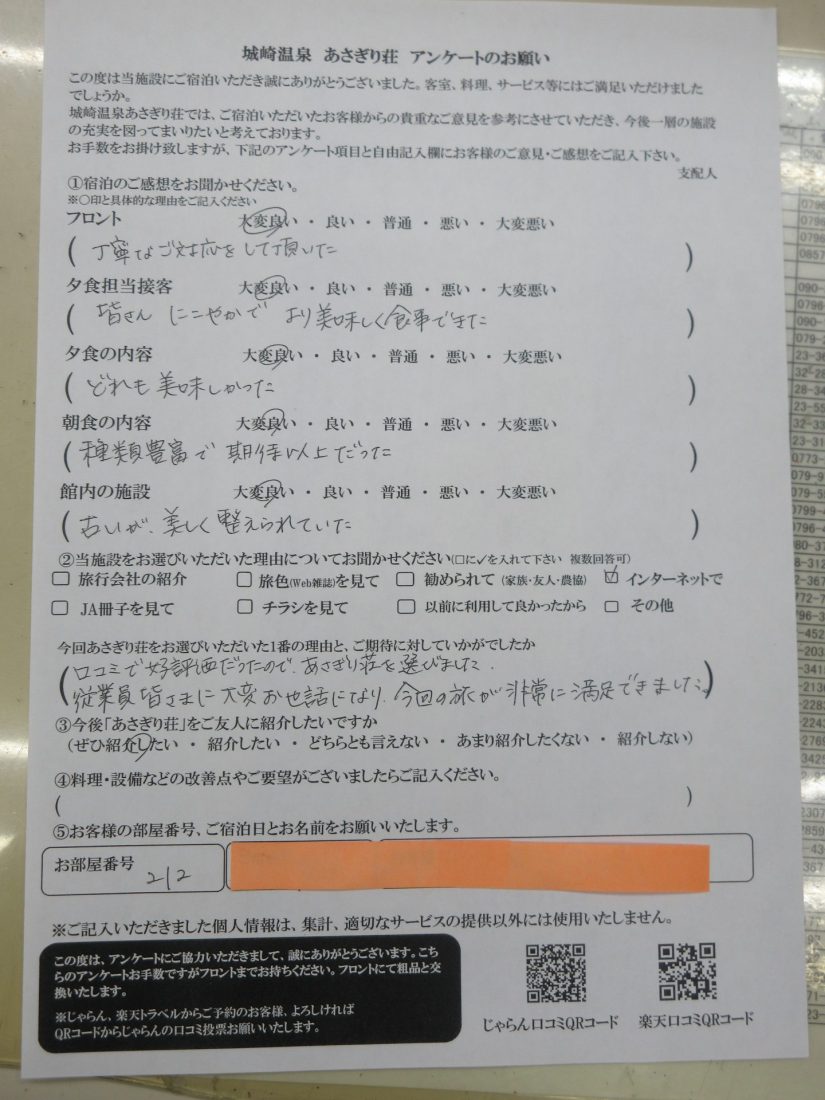 城崎温泉 あさぎり荘 アンケートのお願い
この度は当施設にご宿泊いただき誠にありがとうございました。客室、料理、サービス等にはご満足いただけました
でしょうか。
城崎温泉あさぎり荘では、ご宿泊いただいたお客様からの貴重なご意見を参考にさせていただき、今後一層の施設
の充実を図ってまいりたいと考えております。
お手数をお掛け致しますが、下記のアンケート項目と自由記入欄にお客様のご意見・ご感想をご記入下さい。
支配人
①宿泊のご感想をお聞かせください。
※〇印と具体的な理由をご記入ください
フロント 大変良い ・ 良い ・ 普通 ・ 悪い ・ 大変悪い
(丁寧なご対応をして頂いた)
夕食担当接客 大変良い ・ 良い ・ 普通 ・ 悪い ・ 大変悪い
(皆さん にこやかで より美味しく食事できた)
夕食の内容 大変良い ・ 良い ・ 普通 ・ 悪い ・ 大変悪い
(どれも美味しかった)
朝食の内容 大変良い ・ 良い ・ 普通 ・ 悪い ・ 大変悪い
(種類豊富で 期待以上だった)
館内の施設 大変良い ・ 良い ・ 普通 ・ 悪い ・ 大変悪い
(古いが、美しく整えられていた)
②当施設をお選びいただいた理由についてお聞かせください(□に✓を入れて下さい 複数回答可)
□ 旅行会社の紹介 □ 旅色(Web雑誌)を見て □ 勧められて (家族・友人・農協) ☑ インターネットで
□ JA冊子を見て □ チラシを見て □ 以前に利用して良かったから □ その他
今回あさぎり荘をお選びいただいた1番の理由と、ご期待に対していかがでしたか
(口コミで好評価だったので、あさぎり荘を選びました.
従業員皆さまに大変お世話になり、今回の旅が非常に満足できました。)
③今後「あさぎり荘」をご友人に紹介したいですか
(ぜひ紹介したい ・ 紹介したい ・ どちらとも言えない ・ あまり紹介したくない ・ 紹介しない)
④料理・設備などの改善点やご要望がございましたらご記入ください。
( )
⑤お客様の部屋番号、ご宿泊日とお名前をお願いいたします。
お部屋番号 212
※ご記入いただきました個人情報は、集計、適切なサービスの提供以外には使用いたしません。
この度は、アンケートにご協力いただきまして、誠にありがとうございます。こち
らのアンケートお手数ですがフロントまでお持ちください。フロントにて粗品と交
換いたします。
※じゃらん、楽天トラベルからご予約のお客様、よろしければ
QRコードからじゃらんの口コミ投票お願いいたします。
じゃらん口コミQRコード 楽天口コミQRコード